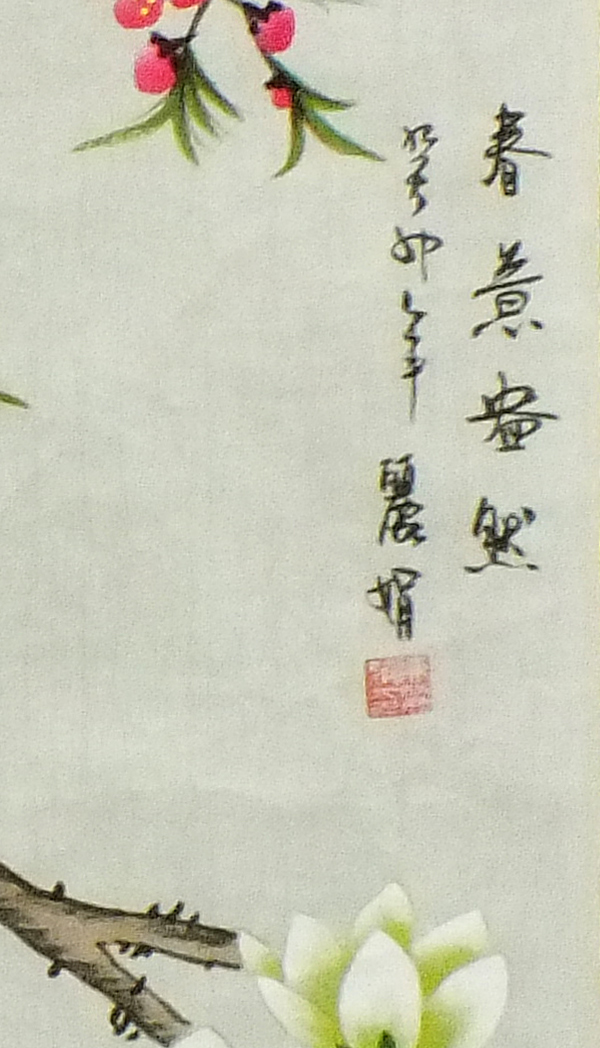 春景盎然
癸卯年 麗娟